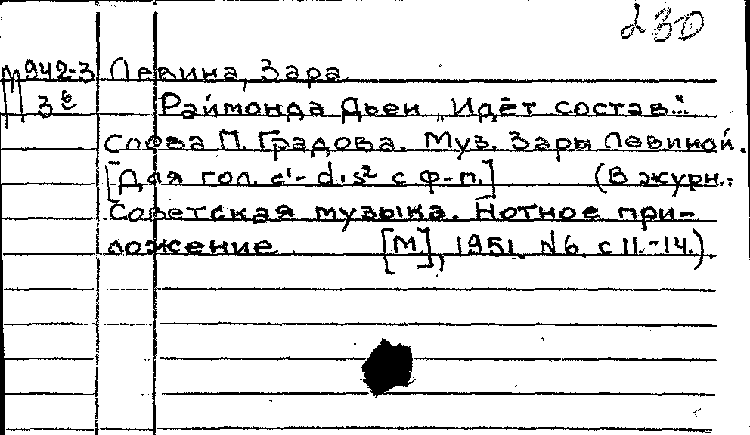 230
М942-3 Левина, Зара
3в Раймонда Дьен „Идёт состав..."
Слова П. Градова. Муз. Зары Левиной.
[Для гол. c¹- dis² с ф-п.] (В журн.:
Советская музыка. Нотное при-
ложение [М], 1951. №6. с 11.-14.).